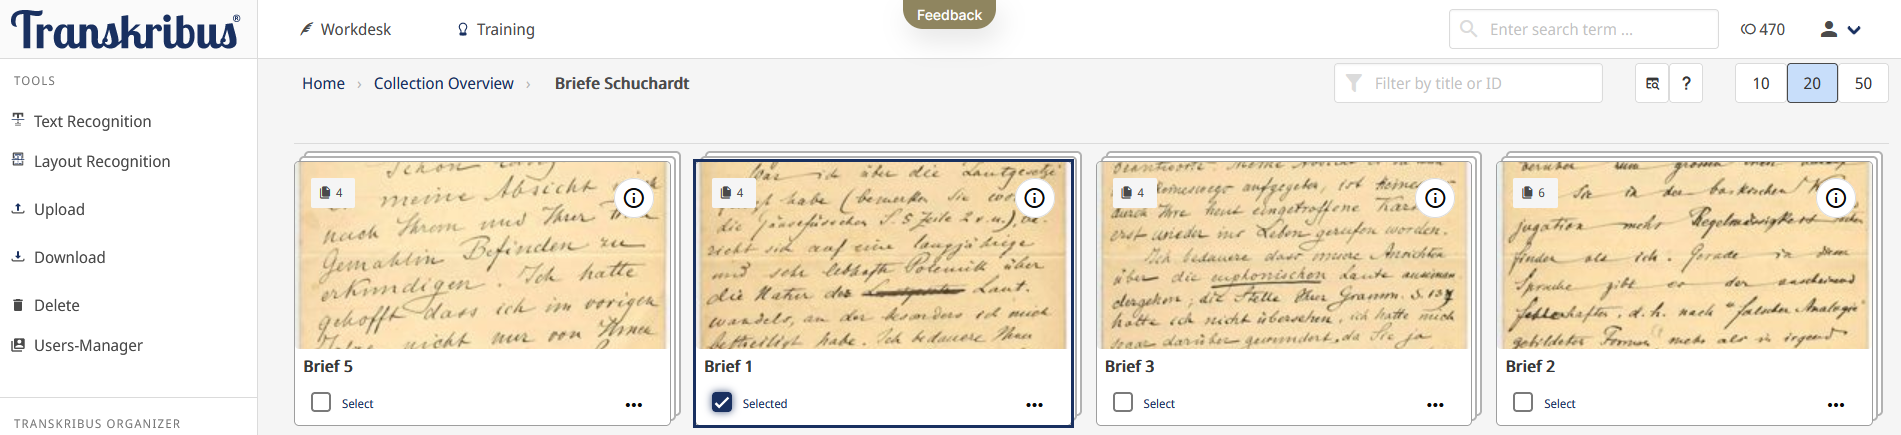 Transkribus®
Workdesk
Training
Feedback
Enter search term ...
470
TOOLS
Text Recognition
Layout Recognition
Upload
Download
Delete
Users-Manager
TRANSKRIBUS ORGANIZER
Home › Collection Overview › Briefe Schuchardt
Filter by title or ID
?
10 20 50
4
meine Absicht
nach Ihrem und Ihrer
Gemahlin Befinden zu
erkundigen. Ich hatte
gehofft dass ich im vorigen
nicht nur von Ihnen
Brief 5
Select
4
ich über die Lautgesetze
habe (bemerken Sie
die Gänsefüsschen S. 5 Zeile 2 v. u.), be-
zieht sich auf eine langjährige
und sehr lebhafte Polemik über
die Natur des Laut-
wandels, an der besonders ich mich
betheiligt habe. Ich bedauere Ihnen
Brief 1
Selected
4
keineswegs aufgegeben, ist
durch Ihre heut eingetroffene
erst wieder ins Leben gerufen worden.
Ich bedauere dass unsere Ansichten
über die euphonischen Laute auseinan-
dergehen; die Stelle Ihrer Gramm. S. 137
hatte ich nicht übersehen, ich hatte mich
sogar darüber gewundert, da Sie ja
Brief 3
Select
6
in der baskischen
jugation mehr Regelmässigkeit
finden als ich. Gerade in dem
Sprache gibt es der anscheinend
fehlerhaften, d. h. nach "falscher Analogie"
gebildeter Formen mehr als in irgend
Brief 2
Select